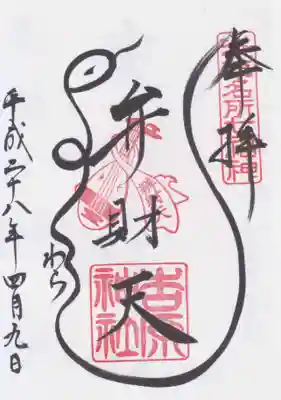 奉拝
弁財天
吉原
神社
平成二十八年四月九日